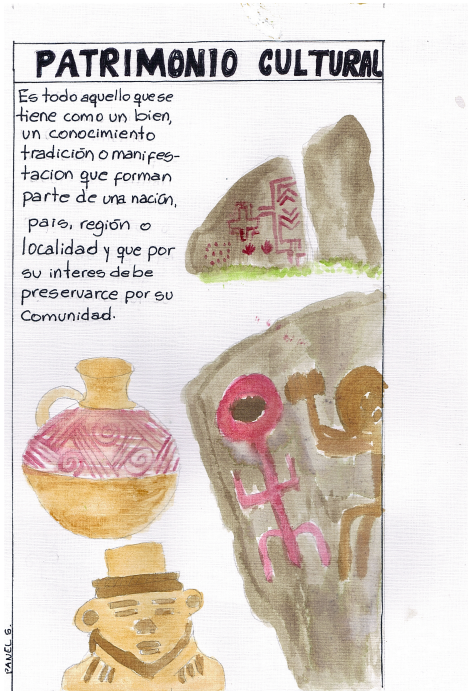 PATRIMONIO CULTURAL
Es todo aquello que se
tiene como un bien,
un conocimiento
tradición o manifes-
tacion que forman
parte de una nación,
pais, región o
localidad y que por
su interes debe
preservarce por su
Comunidad.
PANEL 6.